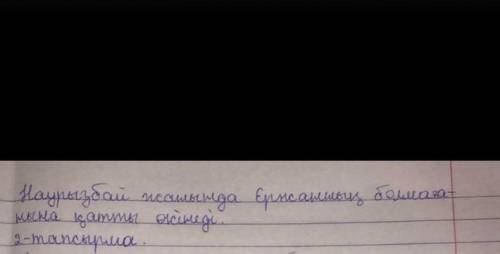 Наурызбай жанында Ержанның болмаға-
нына қатты өкінеді.
2-тапсырма.